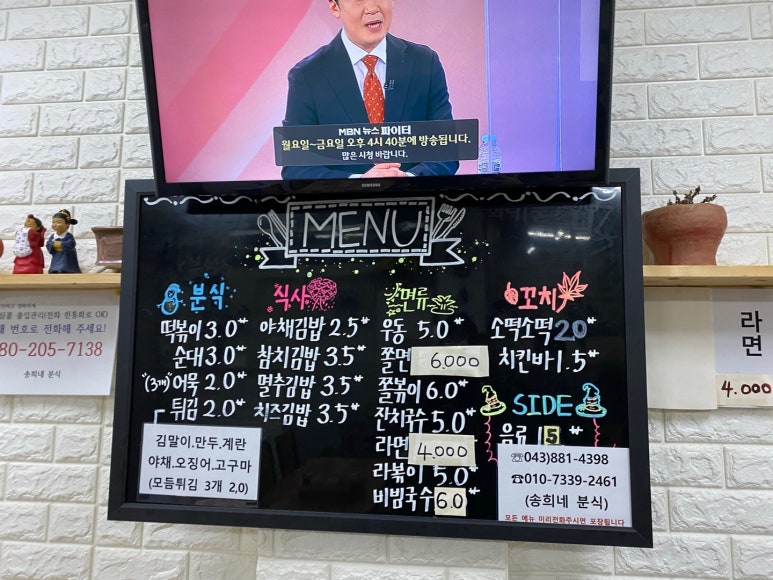 MBN 뉴스 파이터
월요일~금요일 오후 4시 40분에 방송됩니다.
많은 시청 바랍니다.
SAMSUNG
MENU
분식
떡볶이 3.0
순대 3.0
(3개) 어묵 2.0
튀김 2.0
김말이.만두.계란
야채.오징어.고구마
(모듬튀김 3개 2,0)
식사
야채김밥 2.5
참치김밥 3.5
멸추김밥 3.5
치즈김밥 3.5
면류
우동 5.0
쫄면 6.000
쫄볶이 6.0
잔치국수 5.0
라면 4.000
라볶이 5.0
비빔국수 6.0
꼬치
소떡소떡 2.0
치킨바 1.5
SIDE
음료 1.5
☎(043)881-4398
☎010-7339-2461
(송희네 분식)
모든 메뉴 미리전화주시면 포장됩니다
출입관리(전화 한통화로 OK)
번호로 전화해 주세요!
80-205-7138
송희네 분식
라면
4.000